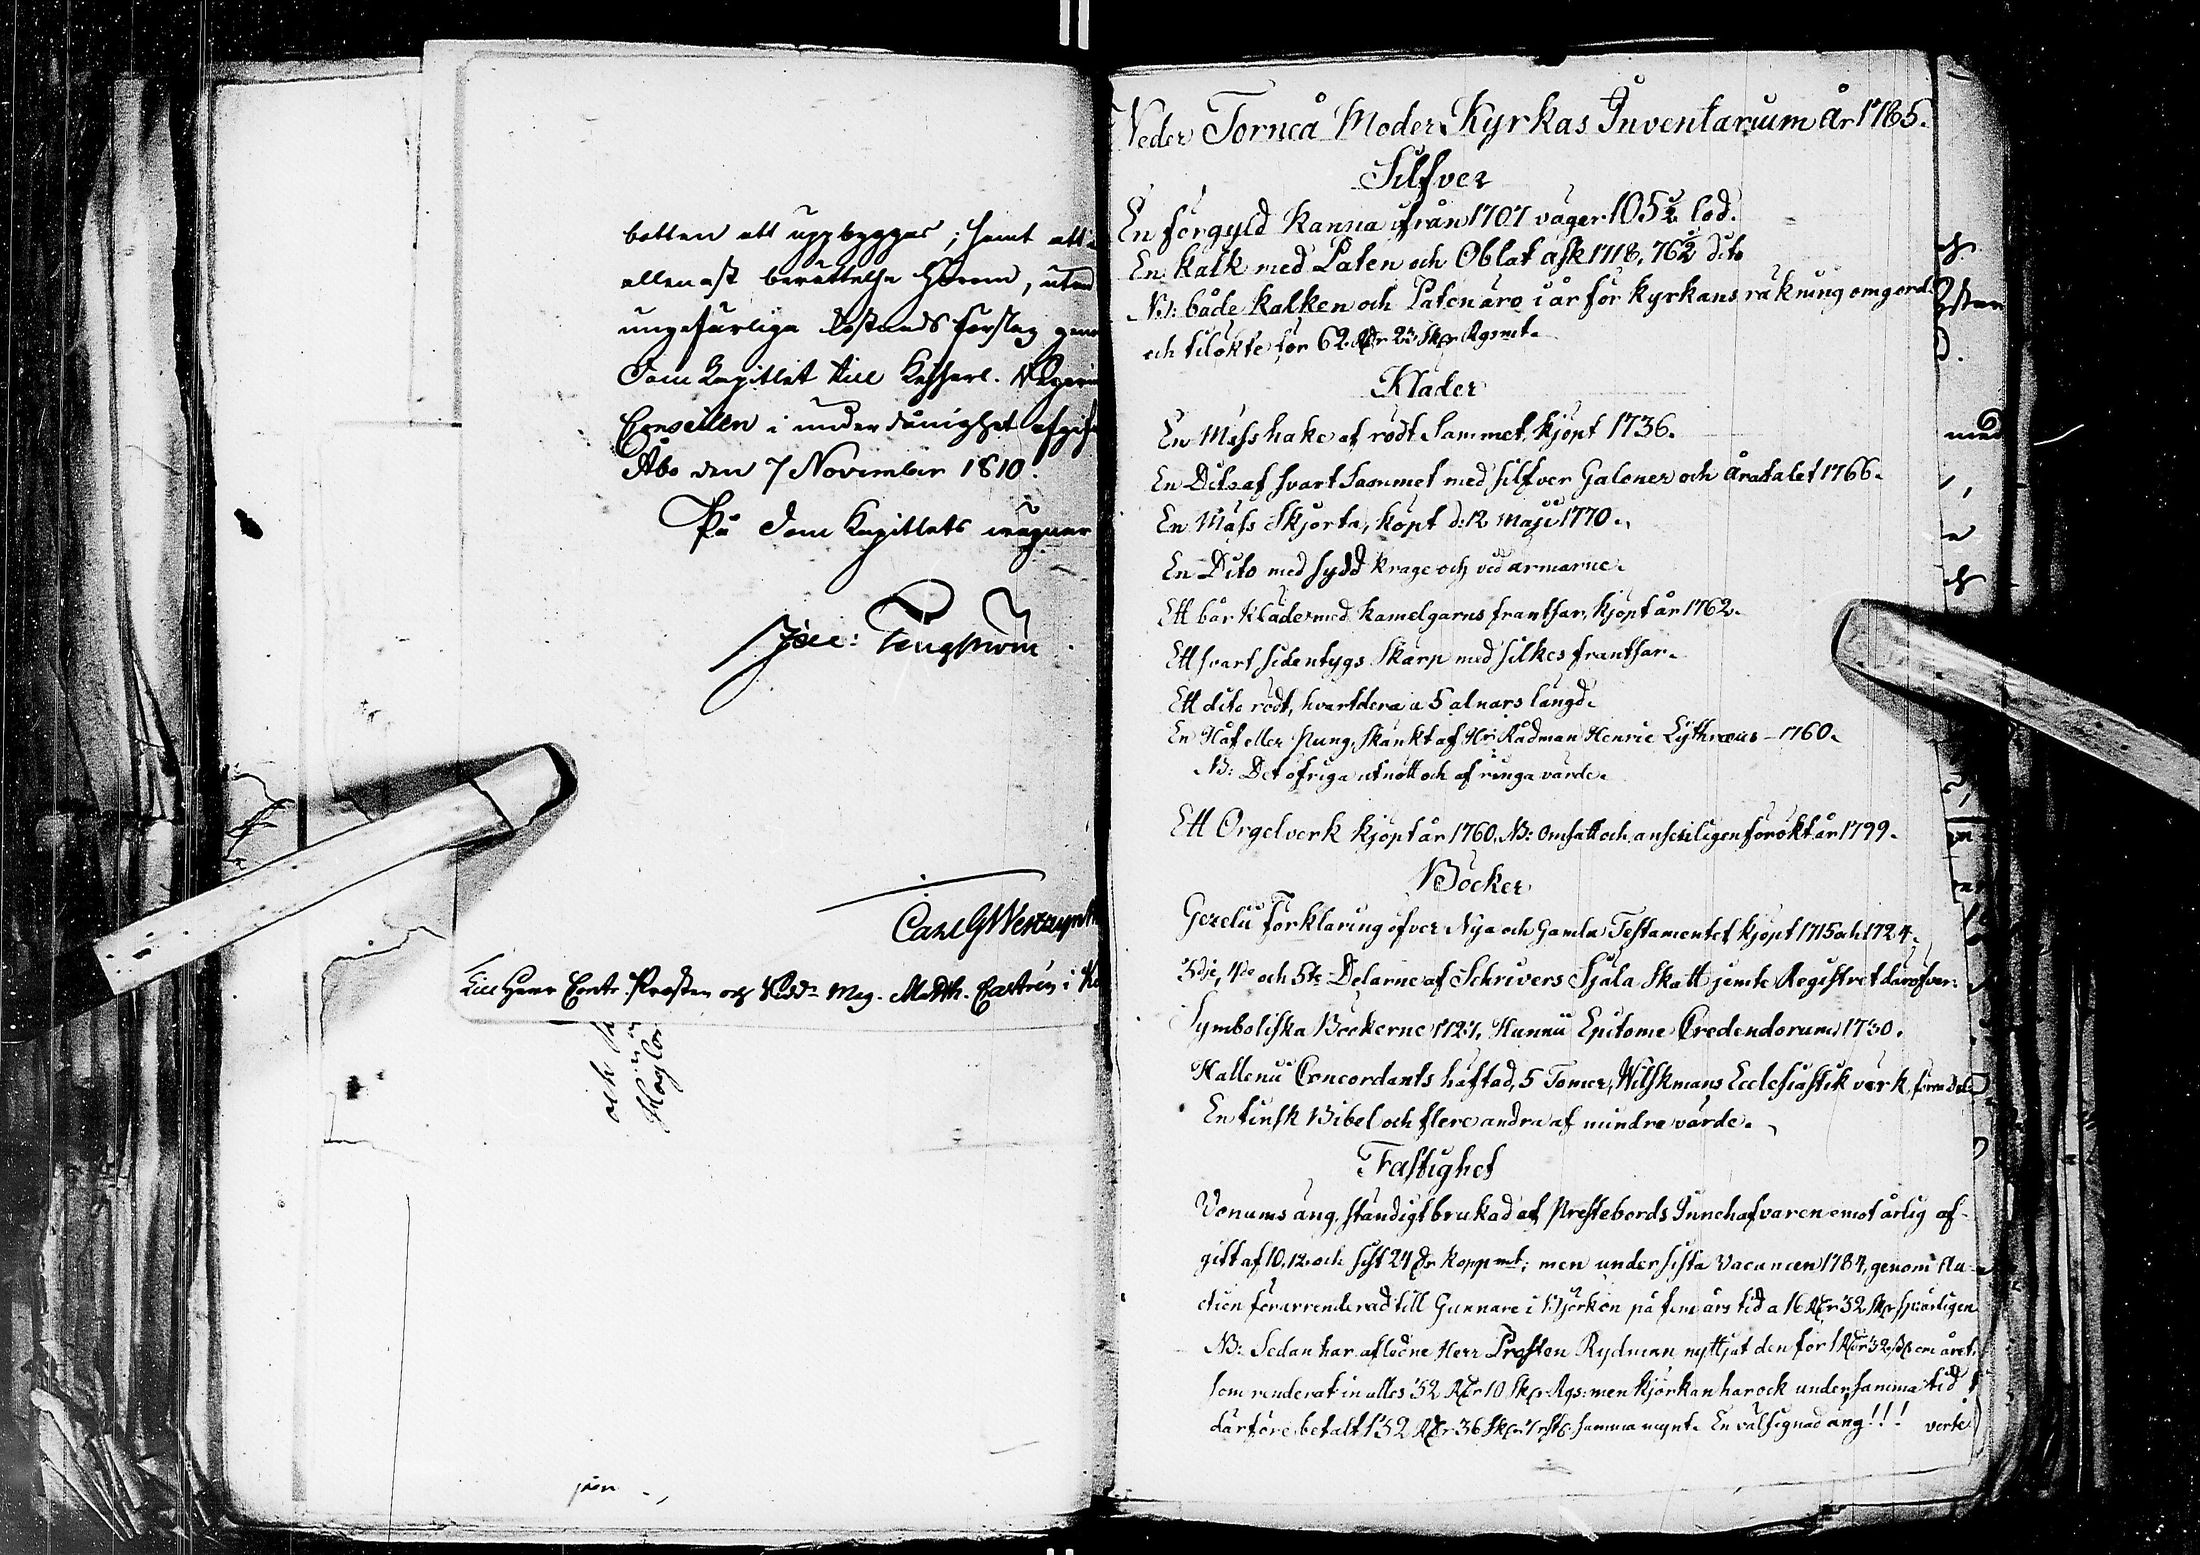 botten att uppbyggas; samt att
allenast berättelse härom, utan
ungefärliga kostnads förslag
Dom Capitlet till Keijserl.
Conseillen i underdånighet
Åbo den 7 November 1810.
På Dom Capitlets wägnar
Jac: Tengström
Till Herr Contr. Prosten och Mag. Matth. Castrén i
och
jöen
Neder Torneå Moder Kyrkas Inventarium År 1785.
Silfver
En förgyld Kanna ifrån 1707 väger 105½ lod.
En Kalk med Paten och Oblat ask 1718, 76½ dito
NB: både Kalken och Paten äro i år för Kyrkans räkning omgord.
och tilökte för 62 Rdr 2 Sk Rgsmt.
Kläder
En Mässhake af rödt Sammet, kjöpt 1736.
En Dito af svart Sammet med silfver Galoner och Åratalet 1766.
En Mäss Skjorta, köpt d: 12 Maji 1770.
En Dito med sydd krage och vid ärmarne.
Ett bår Kläde med kamelgarns frantsar, kjöpt år 1762.
Ett svart sidentygs Skärp med silkes frantsar.
Ett dito rödt, hvartdera a 5 alnars längd.
En Håf eller Pung, skänkt af Hr: Rådman Henric Lythræus - 1760.
NB: Det öfriga utnött och af ringa värde.
Ett Orgelverk kjöpt år 1760. NB: Omsatt och anseeligen förökt år 1799.
Böcker
Gezelii Förklaring öfver Nya och Gamla Testamentet kjöpt 1715 och 1724.
3dje, 4de och 5te Delarne af Schrivers Själa Skatt jemte Registret däröfver.
Symboliska Böckerne 1727, Hunnii Epitome Credendorum 1730.
Hallenii Concordants häftad, 5 Tomer, Wilskmans Ecclesiastik verk,
En finsk Bibel och flere andra af mindre värde.
Fastighet
Vonums äng, ständigt brukad af Prestebords Innehafvaren emot årlig af-
gift af 10, 12 och sist 24 Dr koppmt; men under sista Vacancen 1784, genom Au-
ction förarrenderad till Gunnare i Björkön på fem års tid a 16 Rdr 32 Sk årligen
NB: Sedan har afledne Herr Prosten Rydman nyttjat den för 1 Rdr 32 om året,
som renderat in alles 32 Rdr 10 Sk Rgs: men kjörkan har ock under samma tid
därföre betalt 132 Rdr 36 Sk samma mynt. En välsignad äng!!! verte